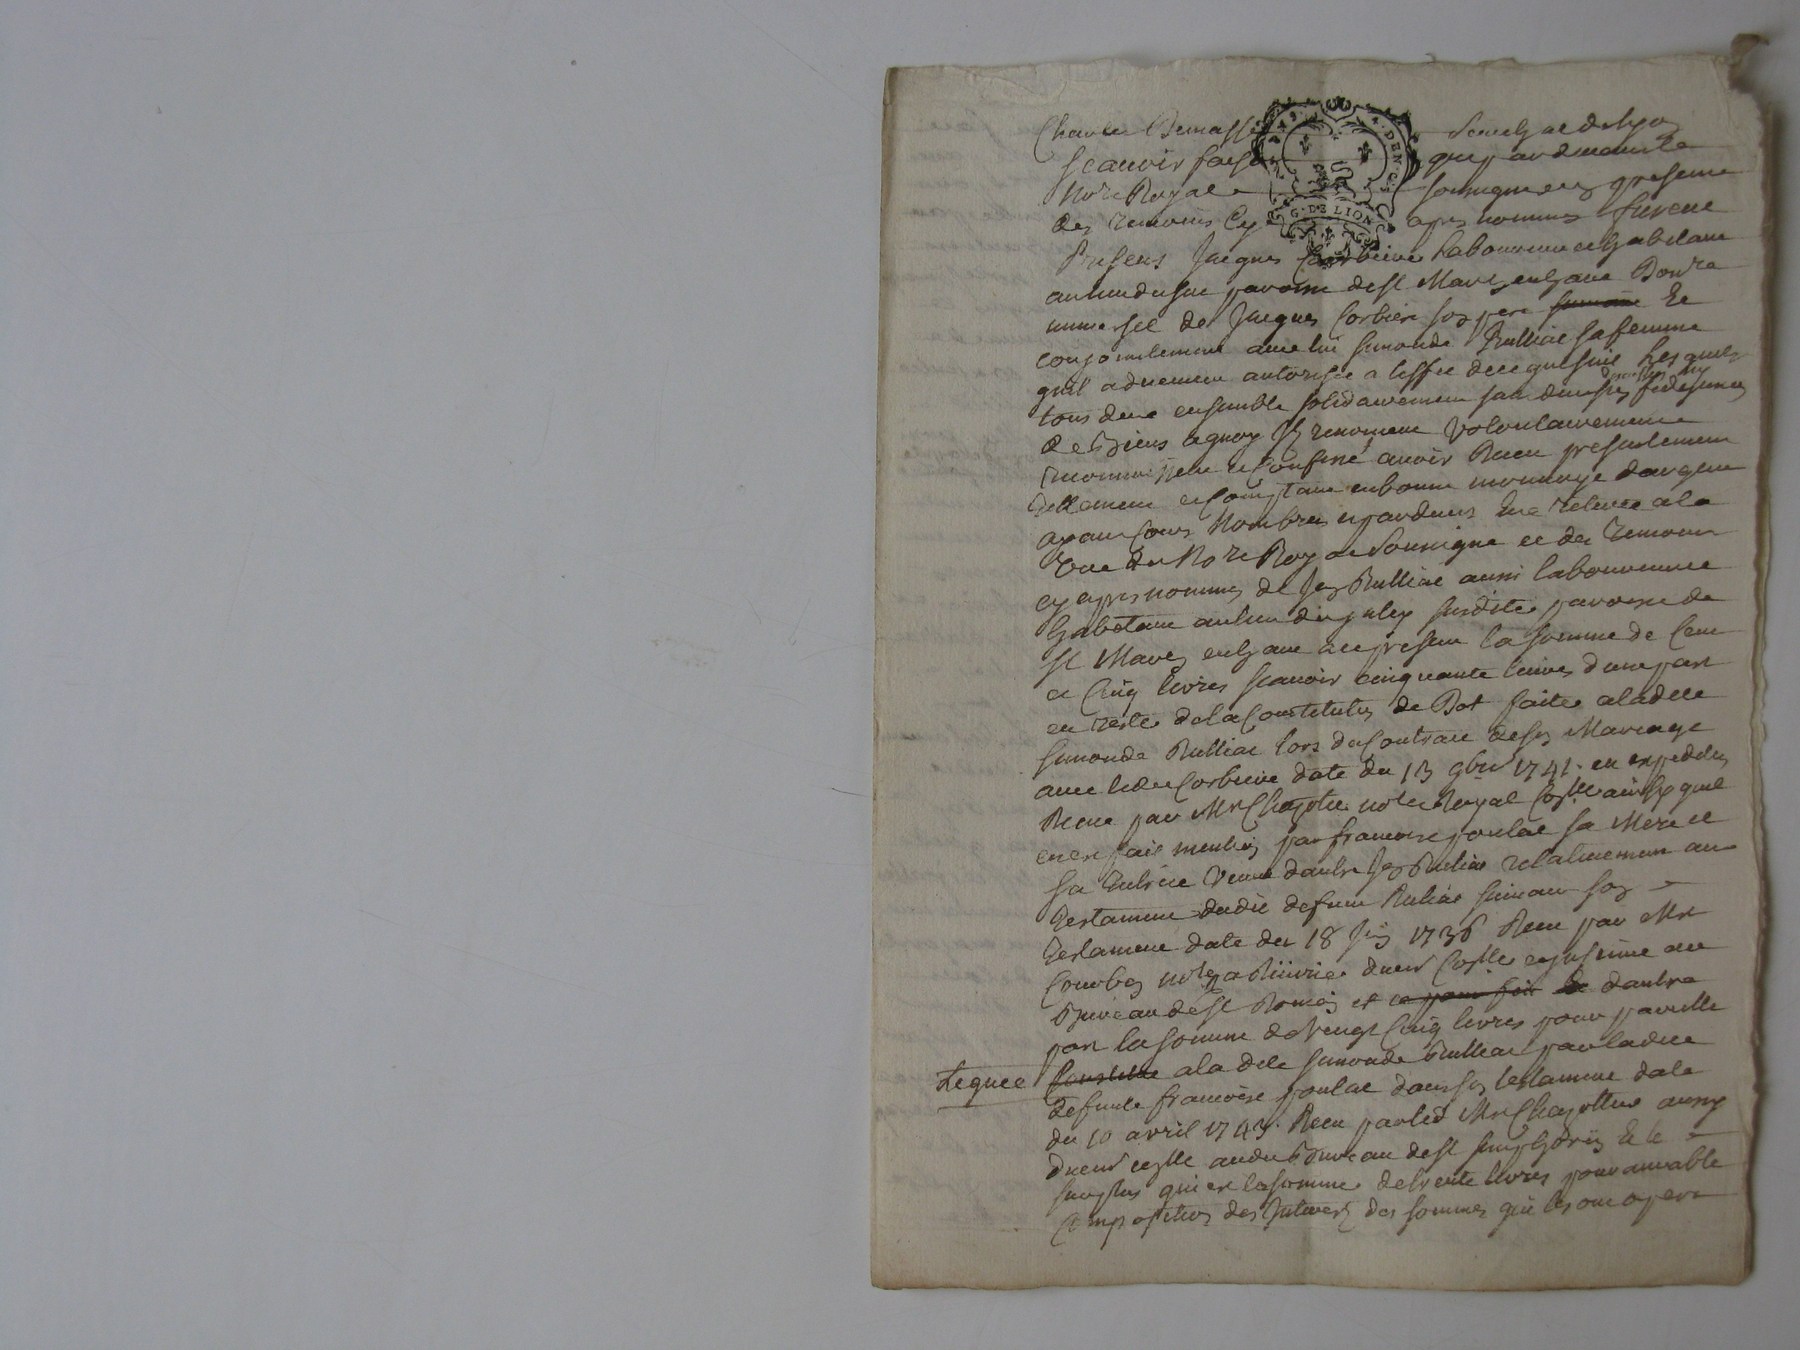 Charles Demasse Senechal de Lyon
Scavoir faisons que par devant le
Nore Royal soussigné en presence
des temoins cy apres nommes furent
Presens Jacques Corbiere Laboureur et habitant
paroisse de St Marc
universel de Jacques Corbiere son pere Et
conjointement avec lui Simonde Rulliat sa femme
quil a duement autorisée a leffet de ce qui suit Lesquels
tous deux ensemble solidairement
de biens a quoy Ils renoncent Volontairement
et Confessé avoir Receu presentement
reellement et Comptant en bonne monnoye dargent
ayant Cours Nombrée Et retirée a la
Vue du Nore Royal soussigné et des temoins
cy apres nommes de Jean Rulliat aussi laboureur
habitant au lieu du susdite paroisse de
St Marc acceptant la somme de Cent
et Cinq livres scavoir cinquante livres dune part
en reste de la Constitution de Dot faite a ladite
Simonde Rulliat lors du Contrat de son Mariage
avec ledit Corbiere date du 13 9bre 1741 en expedition
Receu par Mr Chazotte notre Royal ainsy quil
en est fait mention par francoise poulat sa Mere et
sa tutrice Veuve dautre Jean Rulliat relativement au
Testament dudit defunt Rulliat suivant son
Testament date du 18 Juin 1736 Receu par Mr
Courbon et insinué au
Bureau de St Romain et ce pour soit dautre
part la somme de Vingt Cinq livres pour pareille
Leguée Constituée a la dite Simonde Rulliat par ladite
defunte francoise poulat dans son testament date
du 10 avril 1743 Receu par led Mr Chazotte aussy
au du Bureau de St Simphorien Et le
surplus qui est la somme de trente livres pour amiable
Composition des Interets des sommes
G. DE LION